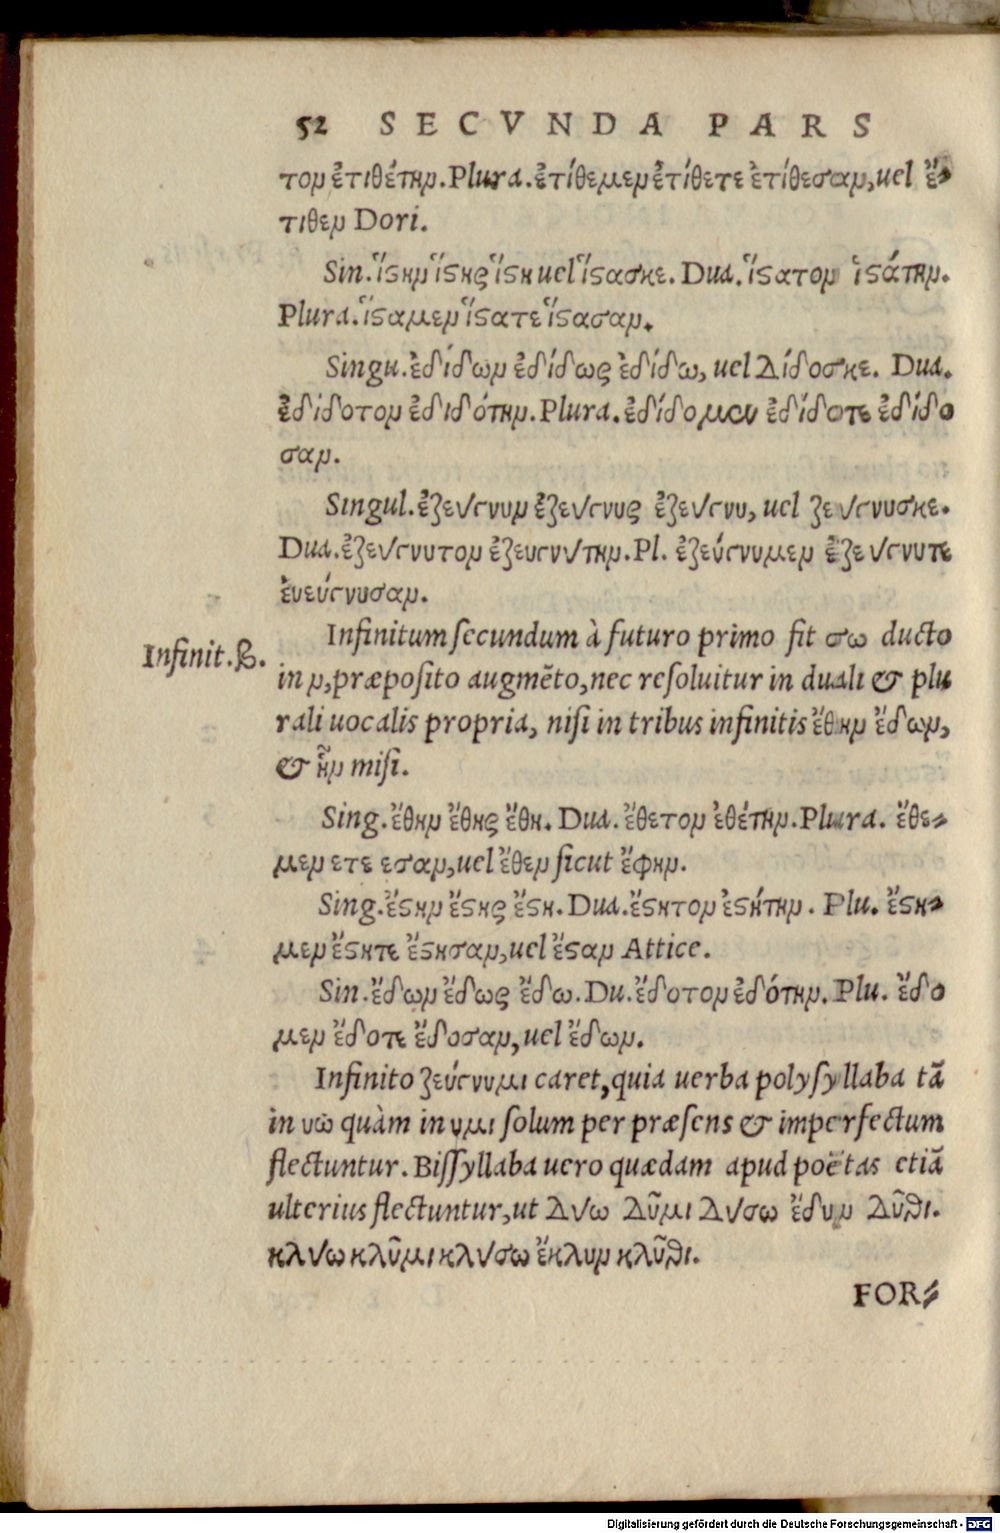 52 SECVNDA PARS
τον ἐτιθέτην. Plura. ἐτίθεμεν ἐτίθετε ἐτίθεσαν, uel ἔ-
τιθεν Dori.
Sin. ἵϛην ἵϛης ἵϛη uel ἵϛασκε. Dua. ἵϛατον ἱϛάτην.
Plura. ἵϛαμεν ἵϛατε ἵϛασαν.
Singu. ἐδίδων ἐδίδως ἐδίδω, uel Δίδοσκε. Dua.
ἐδίδοτον ἐδιδότην. Plura. ἐδίδομεν ἐδίδοτε ἐδίδο
σαν.
Singul. ἐζεύγνυν ἐζεύγνυς ἐζεύγνυ, uel ζεύγνυσκε.
Dua. ἐζεύγνυτον ἐζευγνύτην. Pl. ἐζεύγνυμεν ἐζεύγνυτε
ἐυεύγνυσαν.
Infinit. β.
Infinitum secundum à futuro primo fit σω ducto
in ν, præposito augmēto, nec resoluitur in duali & plu
rali uocalis propria, nisi in tribus infinitis ἔθην ἔδων,
& ἧν misi.
Sing. ἔθην ἔθης ἔθη. Dua. ἔθετον ἐθέτην. Plura. ἔθε-
μεν ετε εσαν, uel ἔθεν sicut ἔφην.
Sing. ἔϛην ἔϛης ἔϛη. Dua. ἔϛητον ἐϛήτην. Plu. ἔϛη-
μεν ἔϛητε ἔϛησαν, uel ἔϛαν Attice.
Sin. ἔδων ἔδως ἔδω. Du. ἔδοτον ἐδότην. Plu. ἔδο
μεν ἔδοτε ἔδοσαν, uel ἔδων.
Infinito ζεύγνυμι caret, quia uerba polysyllaba tā
in υῶ quàm in υμι solum per præsens & imperfectum
flectuntur. Bissyllaba uero quædam apud poëtas etiā
ulterius flectuntur, ut Δύω Δῦμι Δύσω ἔδυν Δῦθι.
κλύω κλῦμι κλύσω ἔκλυν κλῦθι.
FOR-
Digitalisierung gefördert durch die Deutsche Forschungsgemeinschaft - DFG